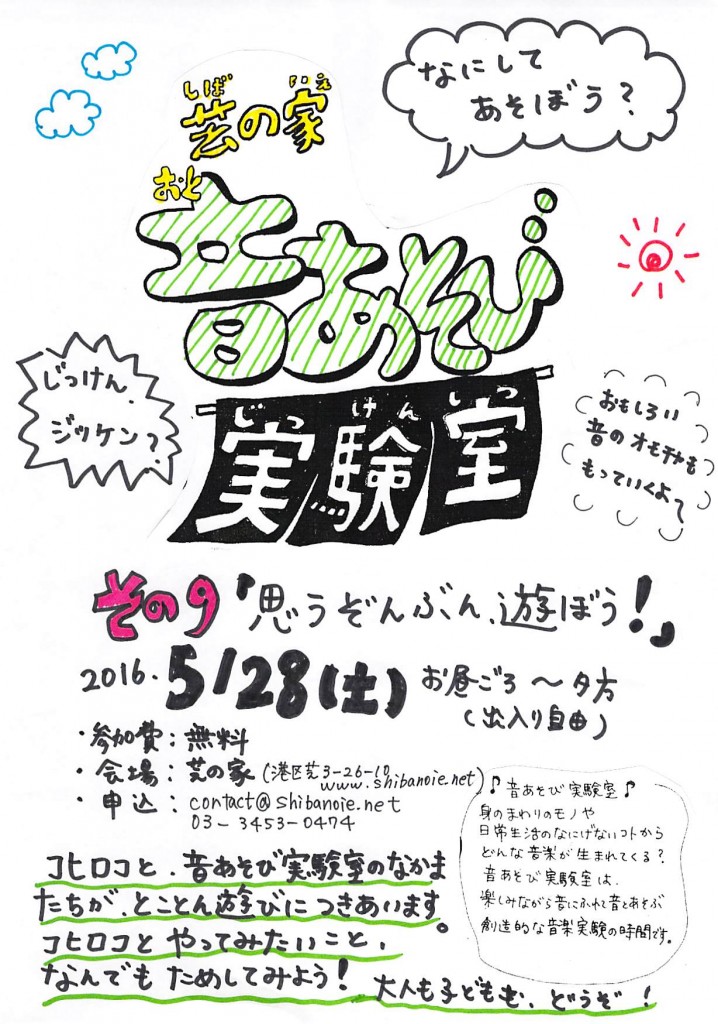 なにして
あそぼう?
しば いえ
芝の家
おと
音あそび
じっけん、
ジッケン?
じっ けん しつ
実験室
おもしろい
音のオモチャも
もっていくよ
その9「思うぞんぶん、遊ぼう!」
2016. 5/28(土) お昼ごろ 〜 夕方
(出入り自由)
・参加費:無料
・会場:芝の家(港区芝3-26-10
www.shibanoie.net)
・申込:contact@shibanoie.net
03-3453-0474
♪音あそび実験室♪
身のまわりのモノや
日常生活のなにげないコトから
どんな音楽が生まれてくる?
音あそび実験室は、
楽しみながら音にふれて音とあそぶ
創造的な音楽実験の時間です。
コヒロコと、音あそび実験室のなかま
たちが、とことん遊びにつきあいます。
コヒロコとやってみたいこと、
なんでもためしてみよう!
大人も子どもも、どうぞ!